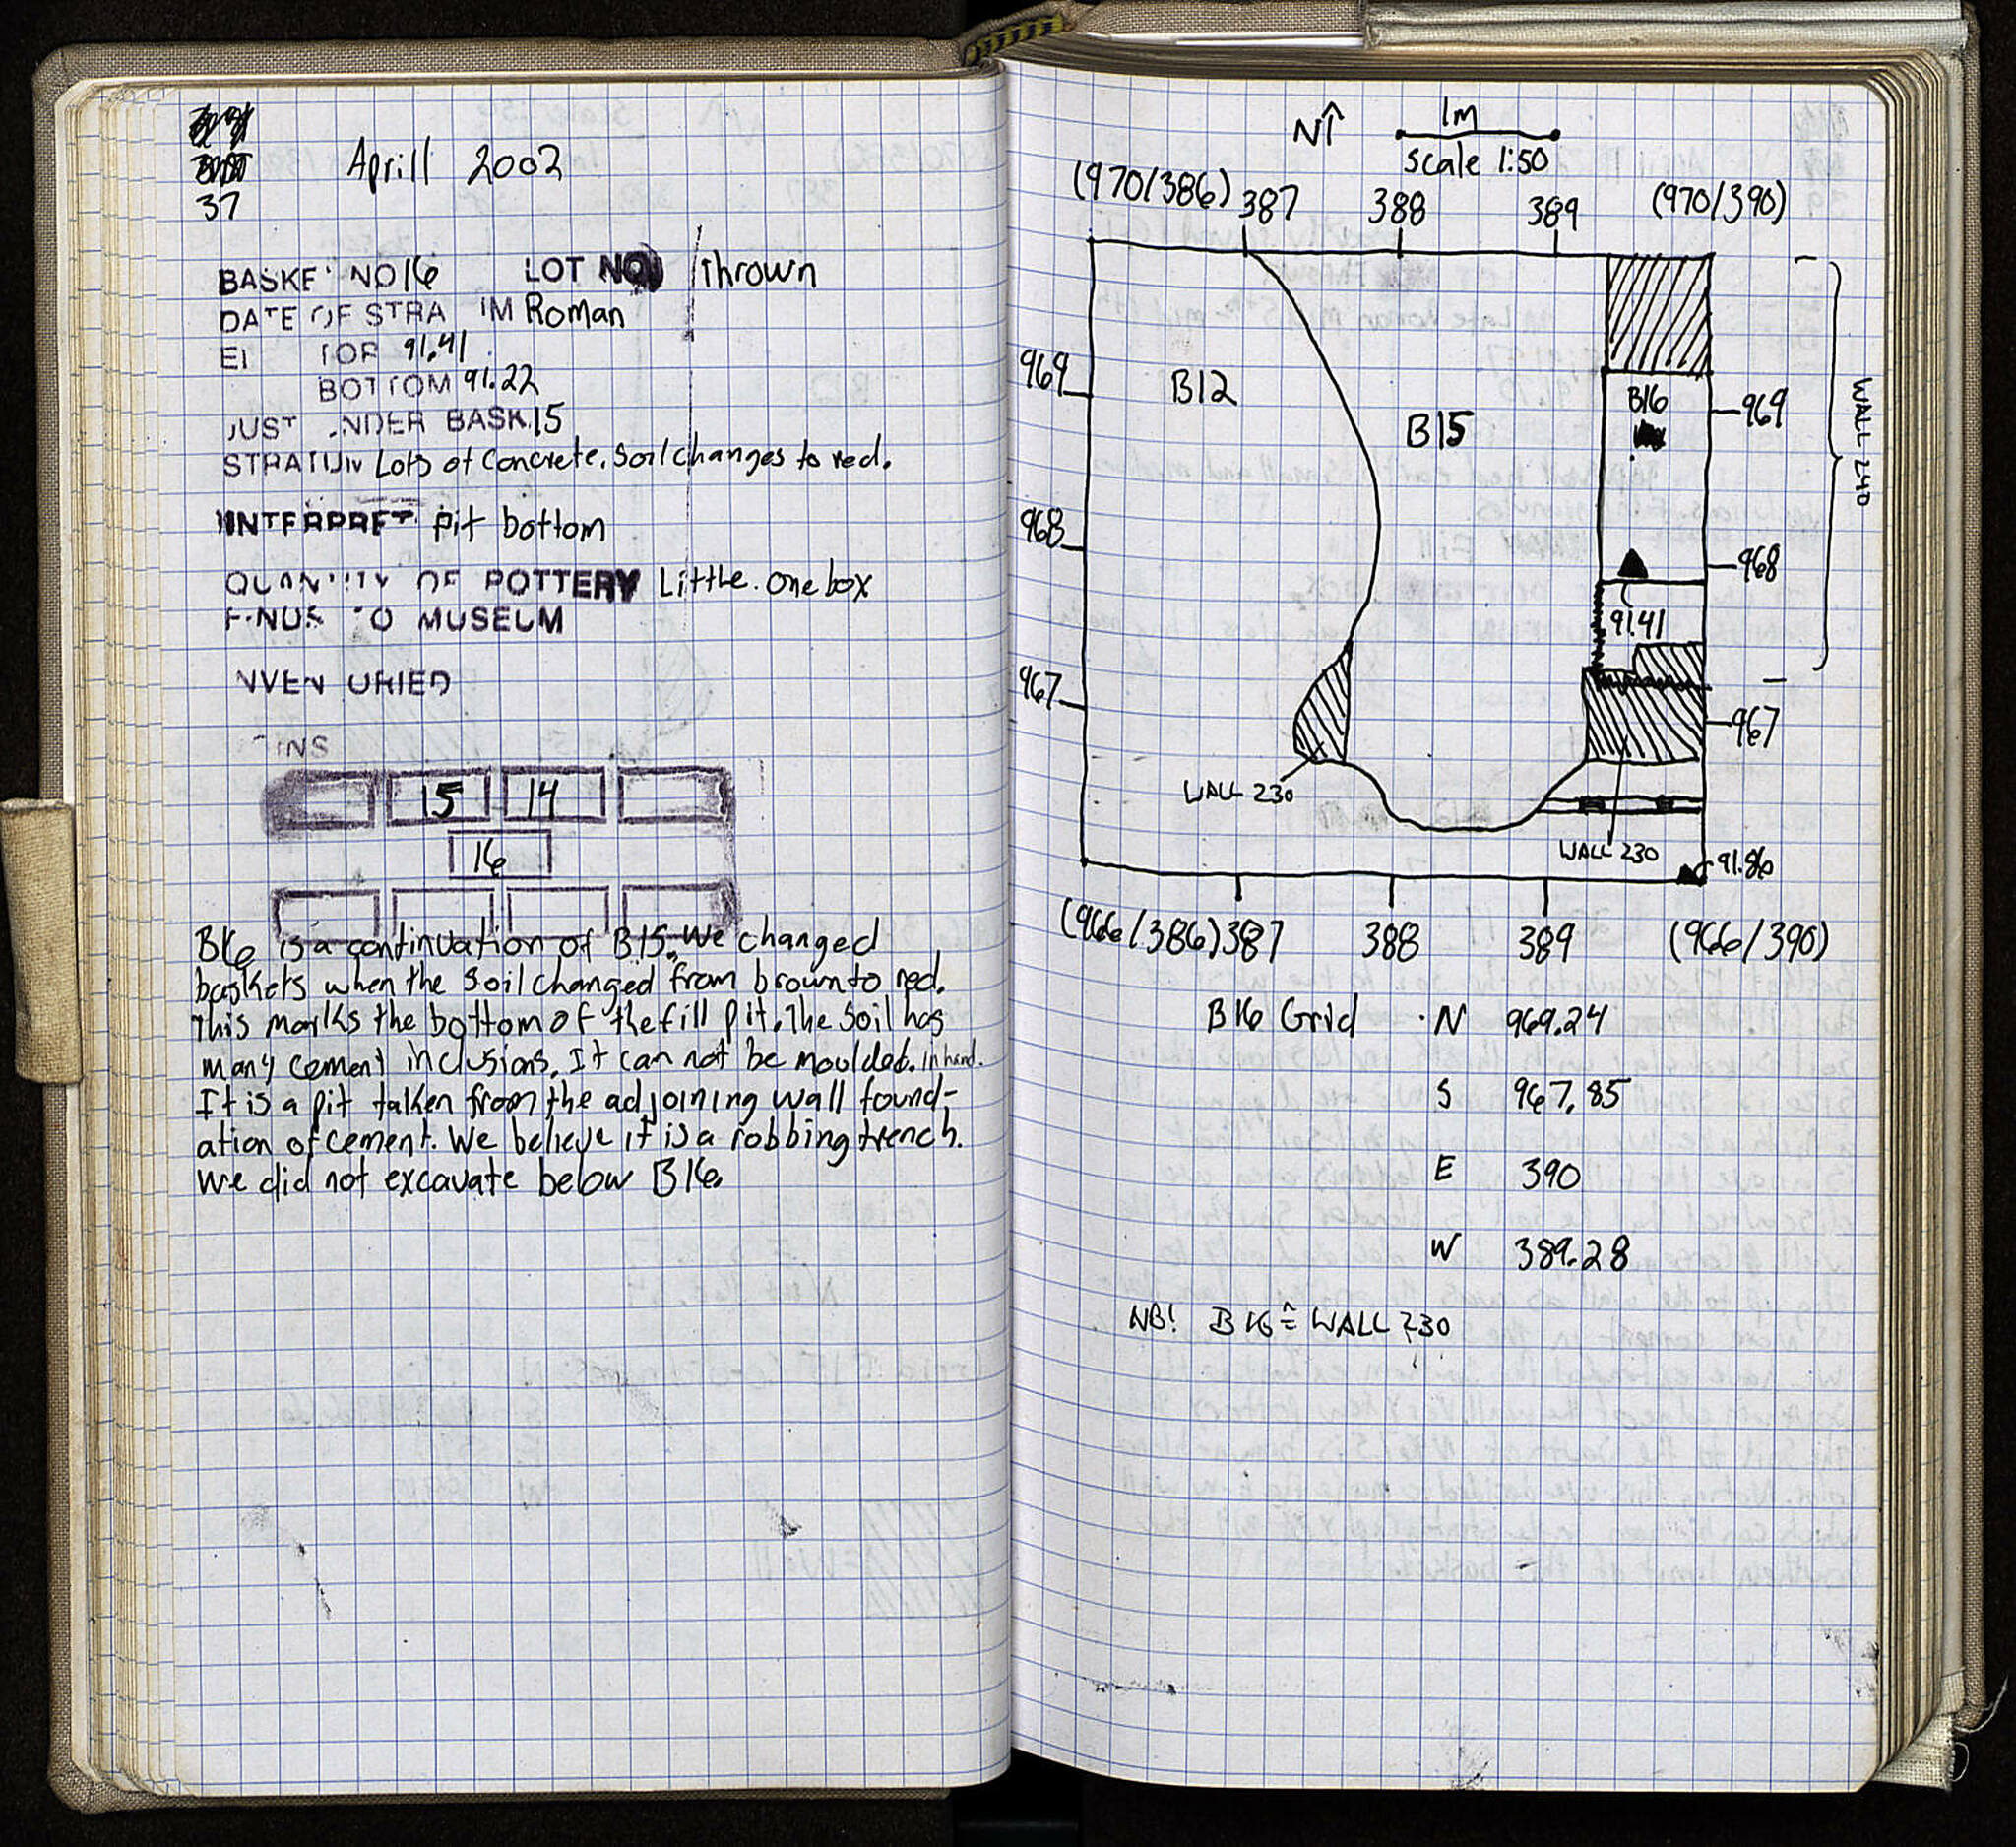 37
Aprill 2002
BASKE NO 16 LOT NO thrown
DATE OF STRA IM Roman
El TOP 91.41
BOTTOM 91.22
JUST NDER BASK 15
STRATUM Lots of Concrete. Soil changes to red.
INTERPRET pit bottom
QUANTITY OF POTTERY Little. one box
FINDS TO MUSEUM
NVEN ORIED
INS
15 14
16
B16 is a continuation of B15. We changed
baskets when the soil changed from brown to red.
This marks the bottom of the fill pit. The soil has
many cement inclusions. It can not be moulded in hand.
It is a pit taken from the adjoining wall found-
ation of cement. We believe it is a robbing trench.
We did not excavate below B16.
N↑ 1m
Scale 1:50
(970/386) 387 388 389 (970/390)
969 B12 B15 B16 969
WALL 240
968 968
91.41
967 967
WALL 230
WALL 230
91.86
(966/386) 387 388 389 (966/390)
B16 Grid · N 969.24
S 967.85
E 390
W 389.28
NB! B16 ≙ WALL 230